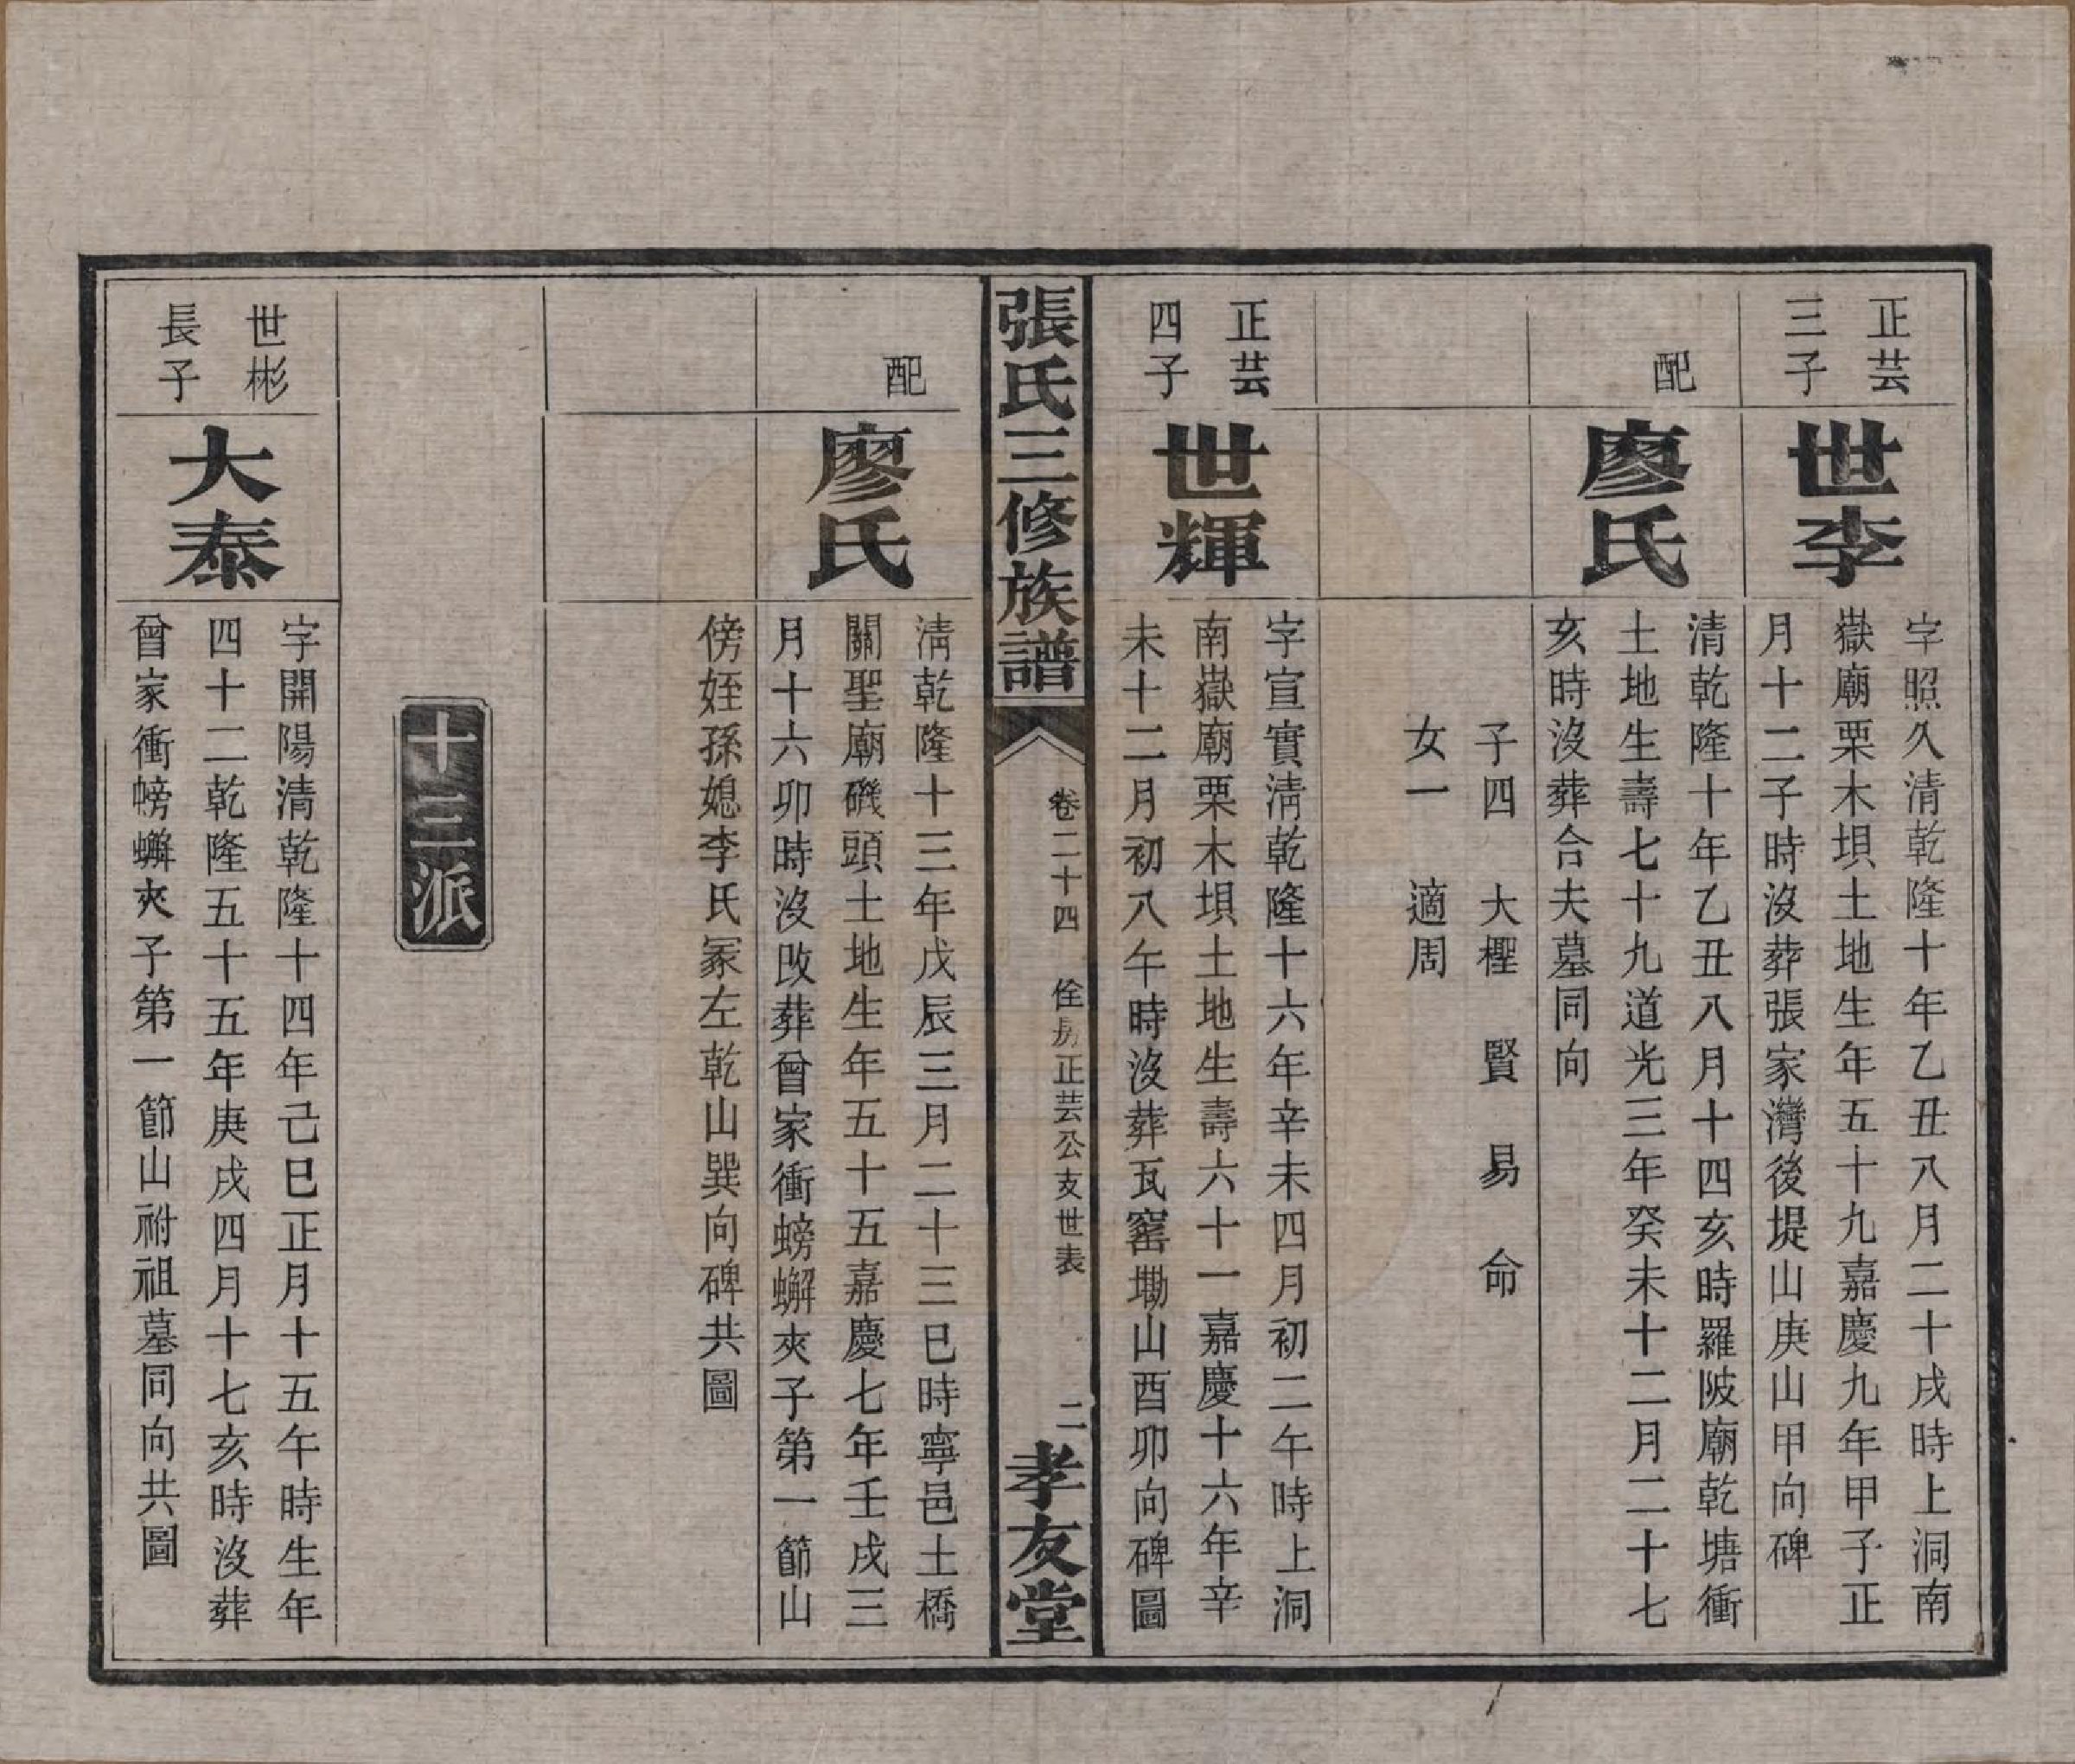 正芸
三子
世李
字照久清乾隆十年乙丑八月二十戌時上洞南
嶽廟栗木垻土地生年五十九嘉慶九年甲子正
月十二子時沒葬張家灣後堤山庚山甲向碑
配
廖氏
清乾隆十年乙丑八月十四亥時羅陂廟乾塘衝
土地生壽七十九道光三年癸未十二月二十七
亥時沒葬合夫墓同向
子四 大檉 賢 易 命
女一 適周
正芸
四子
世輝
字宣實淸乾隆十六年辛未四月初二午時上洞
南嶽廟栗木垻土地生壽六十一嘉慶十六年辛
未十二月初八午時沒葬瓦窰塲山酉卯向碑圖
張氏三修族譜
卷二十四 佺房正芸公支世表 二
孝友堂
配
廖氏
淸乾隆十三年戊辰三月二十三巳時寧邑土橋
關聖廟磯頭土地生年五十五嘉慶七年壬戌三
月十六卯時沒改葬曾家衝螃蠏夾子第一節山
傍姪孫媳李氏冢左乾山巽向碑共圖
十三派
世彬
長子
大泰
字開陽清乾隆十四年己巳正月十五午時生年
四十二乾隆五十五年庚戌四月十七亥時沒葬
曾家衝螃蠏夾子第一節山祔祖墓同向共圖